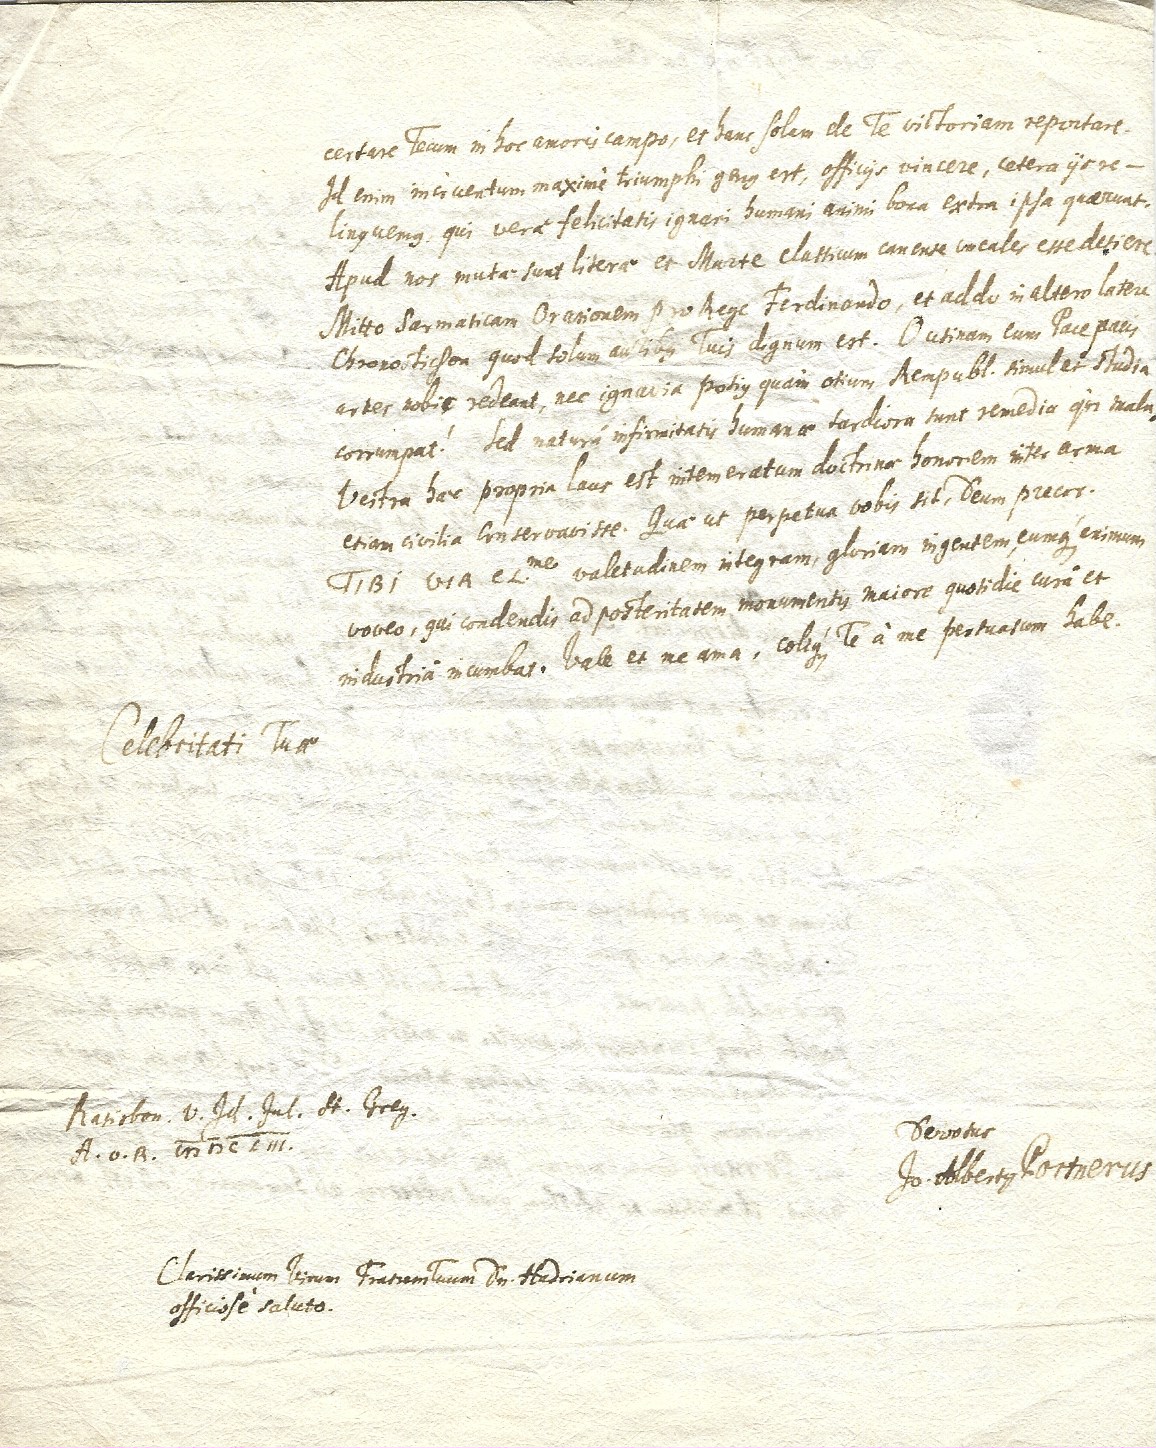 certare Tecum in hoc amoris campo, et hanc solam de Te victoriam reportare.
Id enim incruentum maximè triumphi genus est, officijs vincere, cetera ijs re-
linquemus qui veræ felicitatis ignari humani animi bona extra ipsa quærunt.
Apud nos mutæ sunt literæ et Marte classicum canente vocales esse desiere.
Mitto Sarmaticam Orationem pro Rege Ferdinando, et addo in altero latere
Chronosticham quod solum auribus Tuis dignum est. O utinam cum Pace pacis
artes nobis redeant, nec ignavia potius quàm otium Rempubl. simul et studia
corrumpat! Sed naturâ infirmitatis humanæ tardiora sunt remedia qm mala,
Vestra hæc propria laus est intemeratum doctrinæ honorem inter arma
etiam civilia conservavisse. Quæ ut perpetua vobis sit, Deum precor.
TIBI VIR CL.me valetudinem integram, gloriam ingentem, eumq́ animum
voveo, qui condendis ad posteritatem monumentis maiore quotidie curâ et
industriâ incumbat. Vale et me ama, coliq́ Te à me persuasum habe.
Celebritati Tuæ
Ratisbon. V. Id. Jul. st. Greg.
A. O. R.
Devotus
Jo. Albertus Portnerus
Clarissimum Virum Fratrem Tuum Dn. Hadrianum
officiosè saluto.